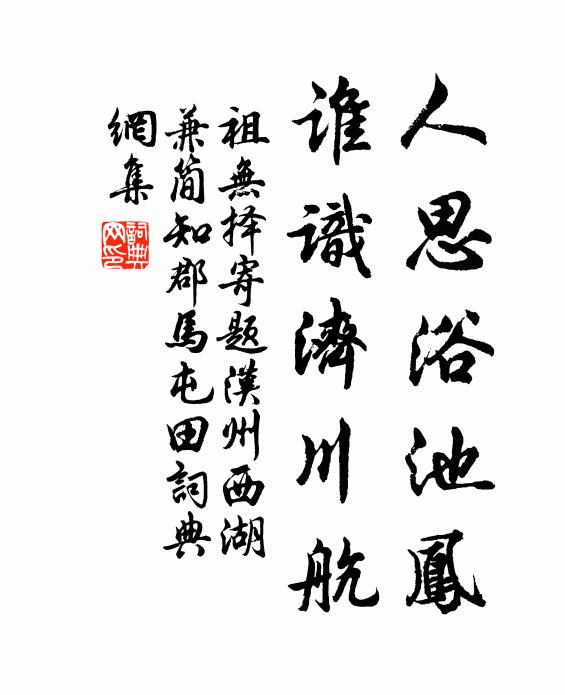 人思浴池鳳
誰識濟川航
祖無择寄题漢州西湖
兼简知郡馬屯田詞典
網集
詞典網印